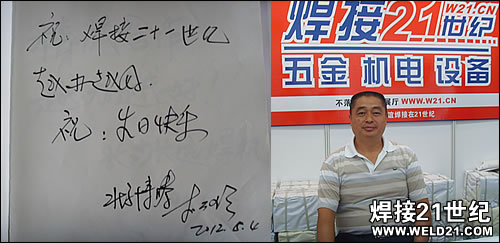 祝：焊接二十一世纪
越办越好．
祝：生日快乐
2012.8.4
焊接21世纪
五金 机电 设备
展厅 WWW.W21.CN
焊接在21世纪
焊接21世纪
WWW.WELD21.COM